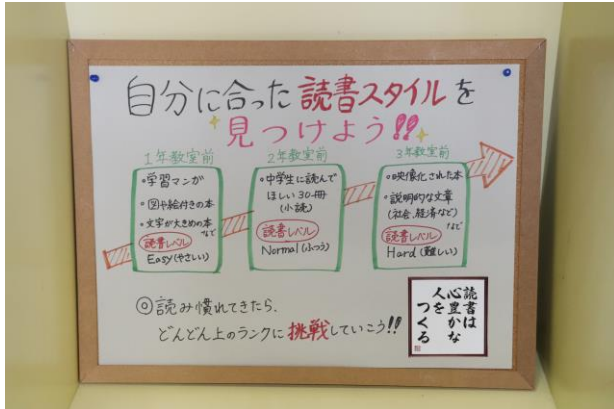 自分に合った読書スタイルを
見つけよう!!
1年教室前
・学習マンガ
・図や絵付きの本
・文字が大きめの本
など
読書レベル
Easy(やさしい)
2年教室前
・中学生に読んで
ほしい30冊
(小説)
読書レベル
Normal(ふつう)
3年教室前
・映像化された本
・説明的な文章
(社会、経済など)
など
読書レベル
Hard(難しい)
◎読み慣れてきたら、
どんどん上のランクに挑戦していこう!!
読書は
心豊かな
人を
つくる